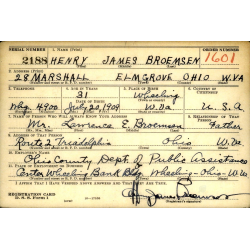 SERIAL NUMBER 1. NAME (Print) ORDER NUMBER
2188 HENRY JAMES BROEMSEN 1601
2. ADDRESS (Print)
28 MARSHALL ELMGROVE OHIO W.VA
3. TELEPHONE 4. AGE IN YEARS 5. PLACE OF BIRTH 6. COUNTRY OF CITIZENSHIP
31 Wheeling
DATE OF BIRTH
Whg. 4900 July 20, 1909 W. Va U.S.A.
7. NAME OF PERSON WHO WILL ALWAYS KNOW YOUR ADDRESS 8. RELATIONSHIP OF THAT PERSON
Mr. Lawrence E. Broemsen Father
9. ADDRESS OF THAT PERSON
Route 2 Triadelphia Ohio W. Va
10. EMPLOYER'S NAME
Ohio County Dept. of Public Assistance
11. PLACE OF EMPLOYMENT OR BUSINESS
Center Wheeling Bank Bldg. Wheeling-Ohio-W. Va
I AFFIRM THAT I HAVE VERIFIED ABOVE ANSWERS AND THAT THEY ARE TRUE.
REGISTRATION CARD
D. S. S. Form 1
H. James Broemsen